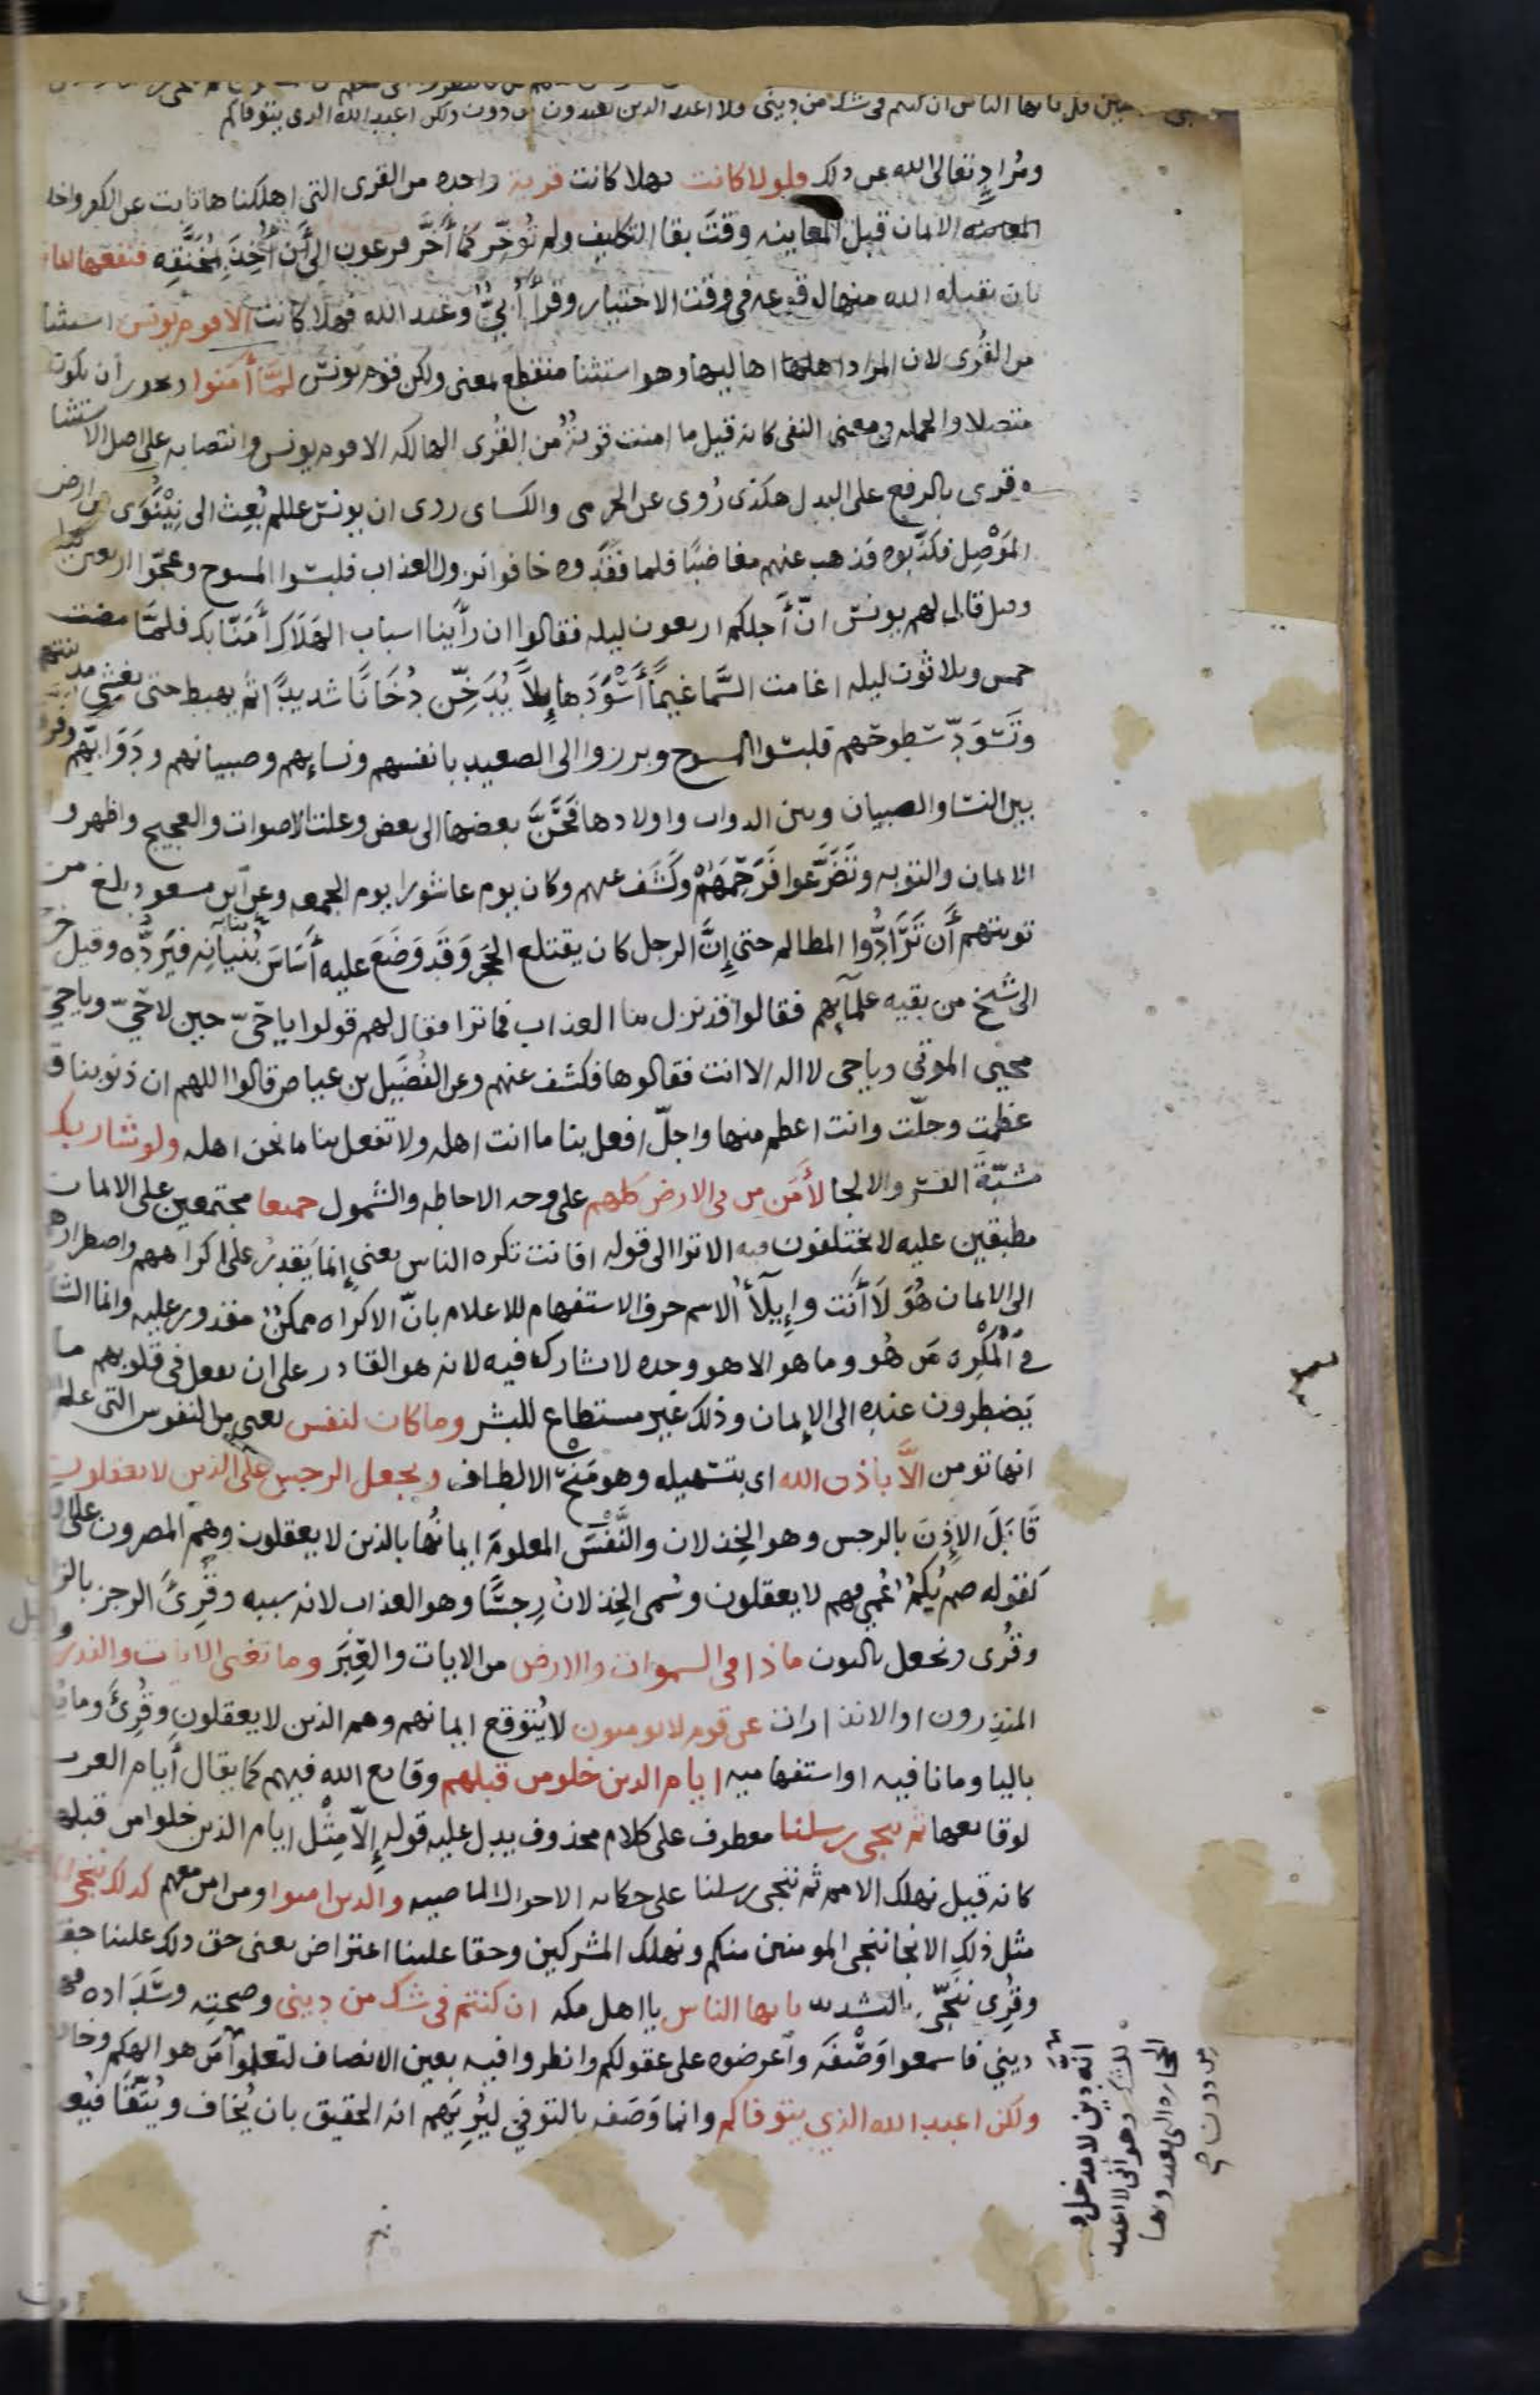 قل يا ايها الناس ان كنتم في شك من ديني ولا اعبد الذين تعبدون من دون ولكن اعبد الله الذي يتوفاكم
ومُرادٍ تعالى الله عن ذلك فلولا كانت فهلا كانت قرية واحده من القرى التي اهلكناها تابت عن الكفر واخلـ
الايمان قبل المعاينه وقتَ بقا التكليف ولم تؤخّر كما أخَّر فرعون الى أن أُخِذَ بمُخَنَّقِه فنفعها ايما
بان يقبله الله منها لوقوعه في وقت الاختيار وقرأ أُبيّ وعبد الله فهلا كانت الا قوم يونس استثنا
من القُرى لان المراد اهاليها وهو استثنا منقطع بمعنى ولكن قوم يونس لمّا أمنوا ويجوز أن يكون
متصلا والجمله في معنى النفي كانه قيل ما امنت قريةٌ من القُرى الهالكه الا قوم يونس وانتصابه على اصل الاستثنا
وقرى بالرفع على البدل هكذى رُوى عن الجرمى والكساى روى ان يونس عللم بُعِث الى نِيْنَوَى من ارض
المَوْصِل فكذّبوه فذهب عنهم مغاضبًا فلما فقَدوه خافوا نزول العذاب فلبسوا المسوح وعجّوا اربعين ليلـ
وقيل قال لهم يونس انّ أجلكم اربعون ليله فقالوا ان رأينا اسباب الهَلَاك أمَنّا بك فلمّا مضت
خمس وثلاثون ليله اغامت السَّما غيمًا أسْوَدَ هايلاً يُدَخِّن دُخَانًا شديدًا ثم يهبط حتى يغشى مدينتهم
وتَسْوَدّ سُطوحهم فلبسوا المسوح وبرزوا الى الصعيد بانفسهم ونسايهم وصبيانهم ودَوَابّهم وفرقوا
بين النسا والصبيان وبين الدواب واولادها فحَنَّ بعضها الى بعض وعلت الاصوات والعجيج واظهروا
الايمان والتوبه وتَضَرَّعوا فَرَحِمَهُمْ وكَشَف عنهم وكان يوم عاشورا يوم الجمعه وعن ابن مسعود بلغ من
توبتهم أن تَرَادُّوا المظالم حتى إنَّ الرجل كان يقتلع الحجَر وَقَد وَضَعَ عليه أسَاسَ بُنيانِه فيَردُّه وقيل خر
الى شيخ من بقيه علمآيهم فقالوا قد نزل بنا العذاب فما ترا فقال لهم قولوا يا حَيّ حين لا حَيّ ويا حيّ
محيي الموتى ويا حى لا اله الا انت فقالوها فكشف عنهم وعن الفُضَيل بن عياض قالوا اللهم ان ذنوبنا قد
عظمت وجلّت وانت اعظم منها واجلّ افعل بنا ما انت اهله ولا تفعل بنا ما نحن اهله ولو شا ربك
مشيّة القسْر والالجا لأمَن من في الارض كلهم على وجه الاحاطه والشمول جميعا مجتمعين على الايمان
مطبقين عليه لا يختلفون فيه الا ترا الى قوله افانت تكره الناس يعنى إنما يَقدِر على اكراههم واضطرارهم
الى الايمان هُوَ لَا أنَت وإيلآأُ الاسم حرف الاستفهام للاعلام بانّ الاكراه ممكنٌ مقدور عليه وانما الشأ
في المُكْرِه مَن هُو وما هو الا هو وحده لا يشارك فيه لانه هو القادر على ان يفعل في قلوبهم ما
يَضطرون عنده الى الإيمان وذلك غير مستطاع للبشر وما كان لنفس يعني من النفوس التي علم
انها تومن الاَّ باذن الله اى بتسهيله وهو مَنْحُ الالطاف ويجعل الرجس على الذين لا يعقلون
قَابَلَ الإِذنَ بالرجس وهو الخِذلان والنَّفْسَ المعلومَ ايمانُها بالذين لا يعقلون وهُم المصرون على
كقوله صم بُكمٌ عُمى فهم لا يعقلون وسُمى الخِذلانُ رِجسًا وهو العذاب لانه سببه وقُرِئَ الرجز بالز
وقُرى ونجعل بالنون ماذا في السموات والارض من الايات والعِبَر وما تغنى الايات والنذر
المنذِرون او الانذارات عن قوم لا يومنون لا يُتوقع ايمانهم وهم الذين لا يعقلون وقُرِئَ وما يُـ
باليا وما نافيه او استفهاميه ايام الذين خلو من قبلهم وقايع الله فيهم كما يقال أيام العرب
لوقايعها ثم ننجى رسلنا معطوف على كلام محذوف يدل عليه قوله إلاَّ مِثْل ايام الذين خلوا من قبلهم
كانه قيل نهلك الامم ثم ننجى رسلنا على حكايه الاحوال الماضيه والذين امنوا ومن امن معهم كذلك ننجي
مثل ذلك الانجا ننجى المومنين منكم ونهلك المشركين وحقا علينا اعتراض يعنى حق ذلك علينا حقـ
وقُرِى نُنَجّى بالتشديد يا ايها الناس يا اهل مكه ان كنتم في شك من ديني وصحتِه وسَدَاده فهـ
ديني فاسمعوا وَصْفَه واعرضوه على عقولكم وانظروا فيه بعين الانصاف لتعلموا
ولكن اعبد الله الذي يتوفاكم وانما وَصَفه بالتوفي ليُرِيَهم انه الحقيق بان يُخاف ويُتّقَا فيُعـ
انه دين لا مدخل
وهو أنى لا اعبد
الحجاره التي تعبدونها
من دون